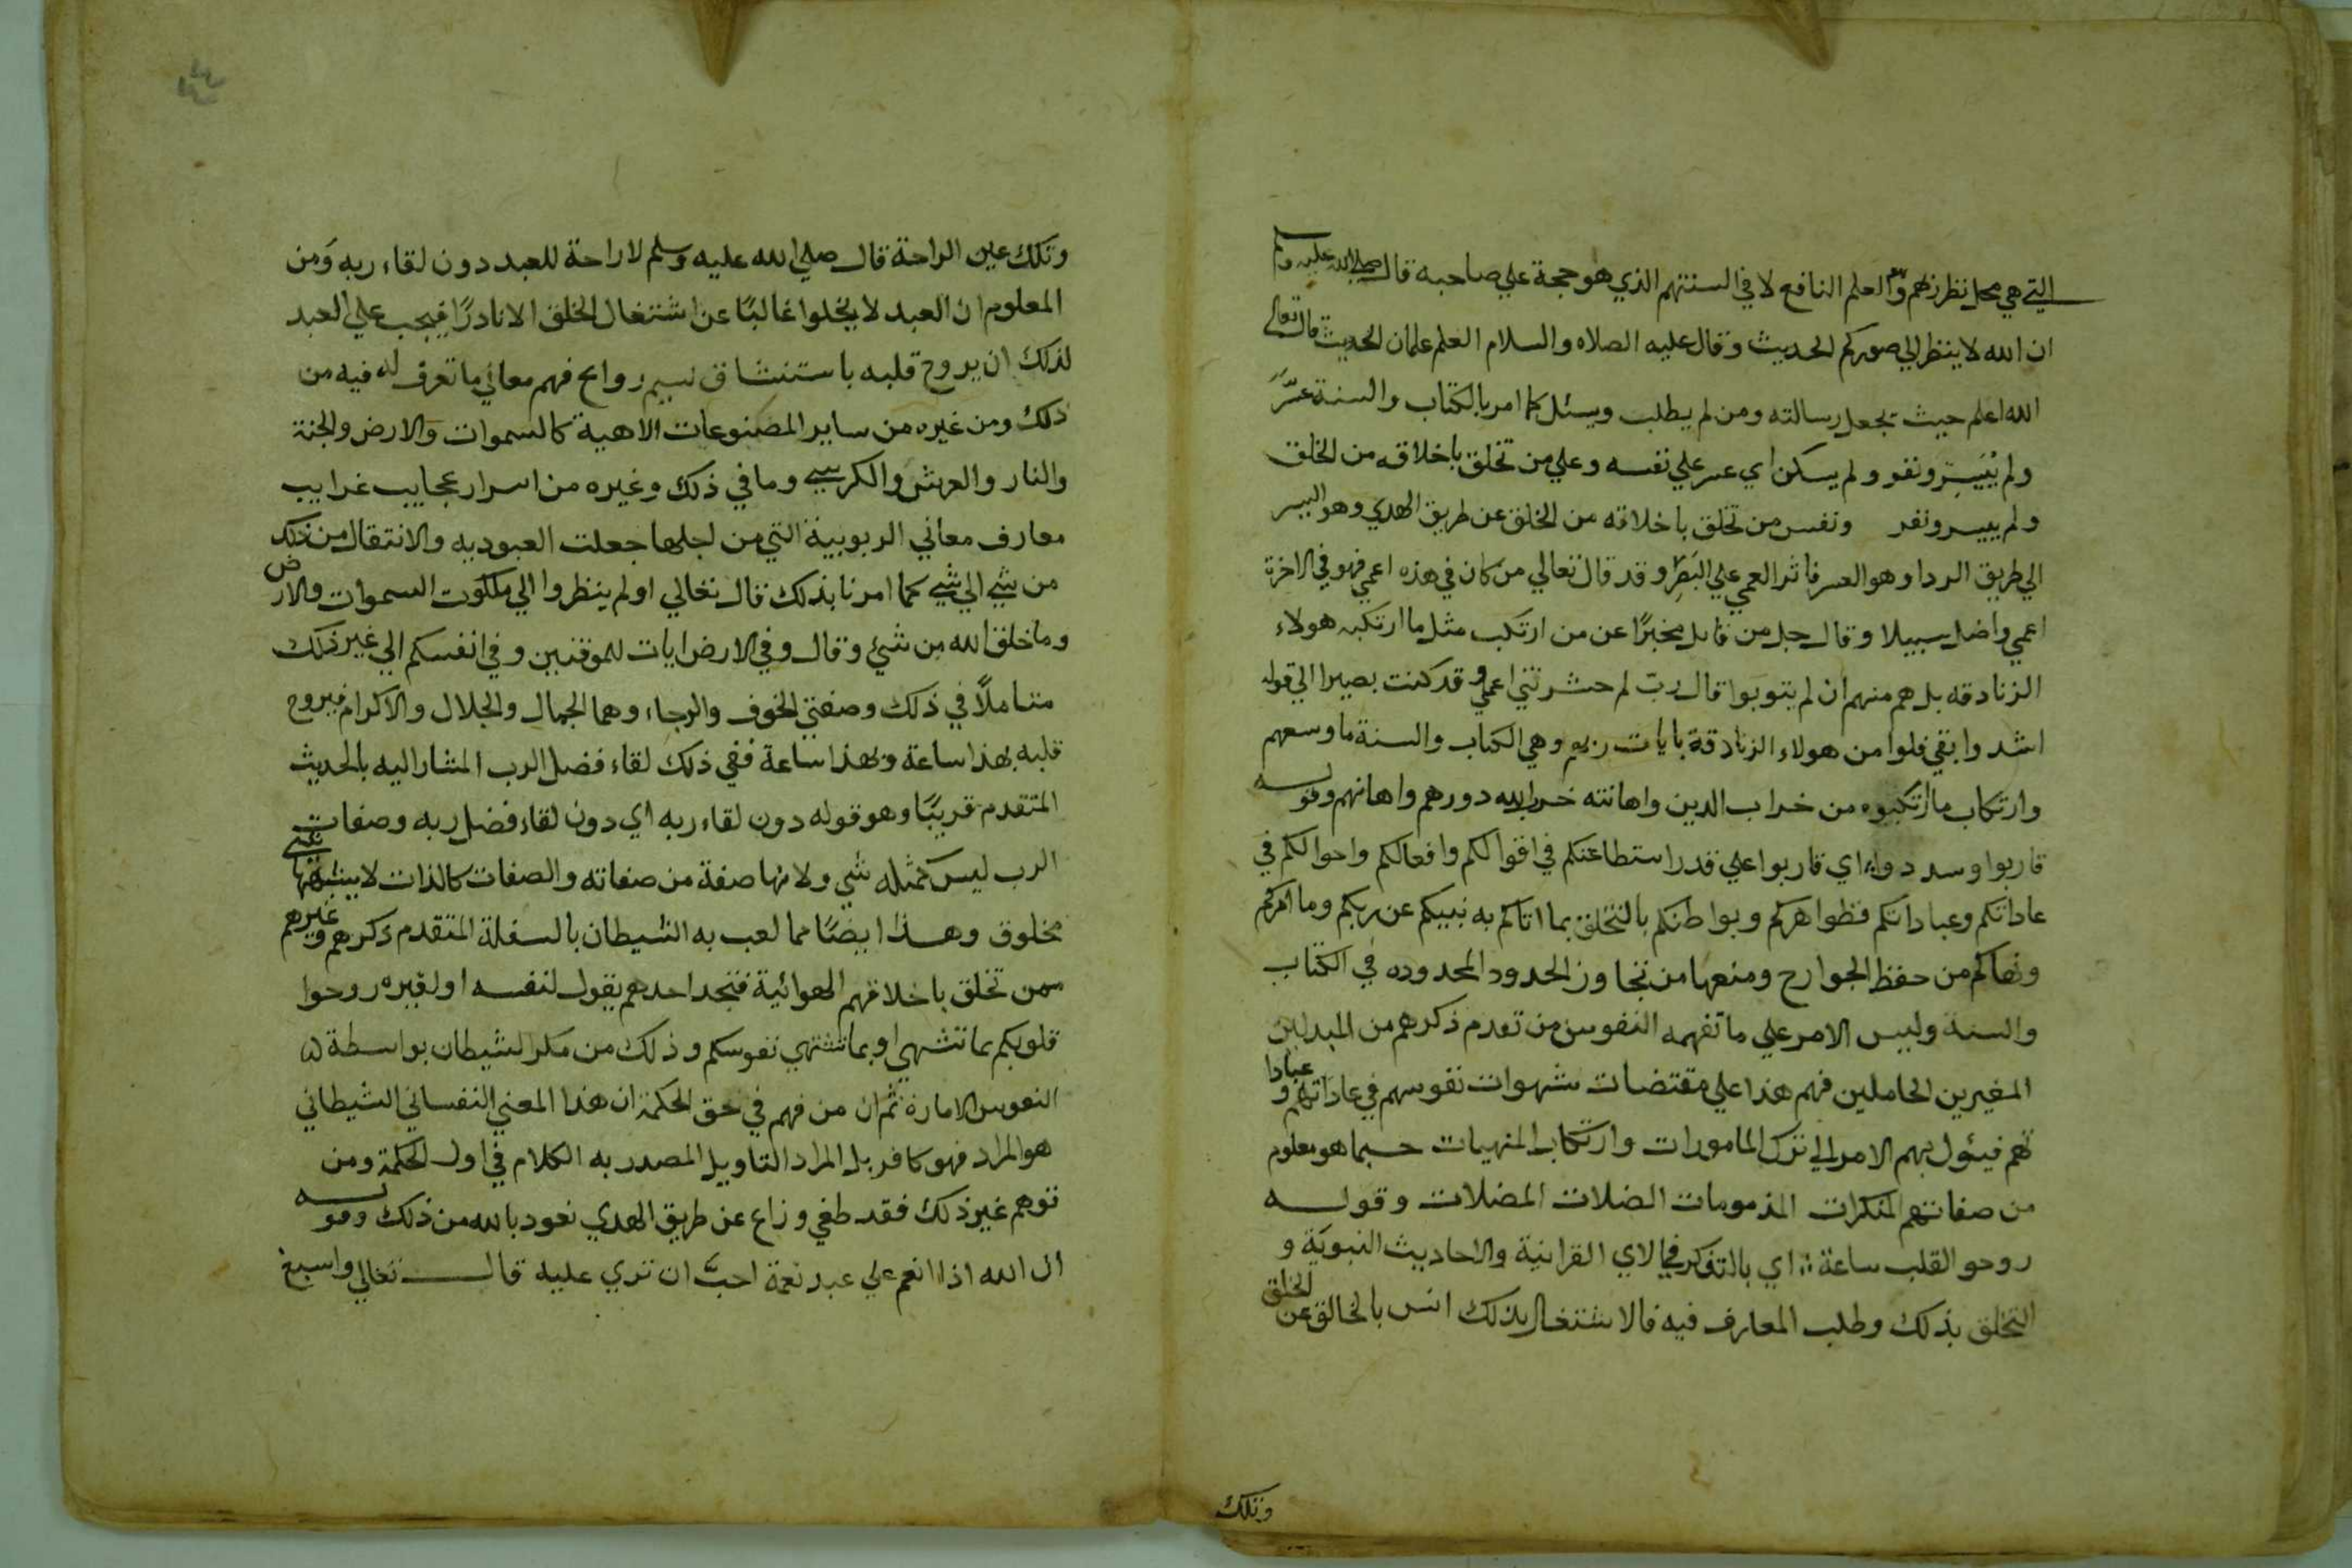 التي هي محل نظر زهم وثم العلم النافع لا في السنتهم الذي هو حجة علي صاحبه قال صلي الله عليه وسلم
ان الله لا ينظر الي صوركم الحديث وقال عليه الصلاه والسلام العلم علمان الحديث قال تعالي
الله اعلم حيث يجعل رسالته ومن لم يطلب ويسئل كما امر بالكتاب والسنة عسَّر
ولم يُيَسِّر ونفر ولم يسكن اي عسر علي نفسه وعلي من تخلق باخلاقه من الخلق
ولم ييسر ونفر ونفس من تخلق باخلاقه من الخلق عن طريق الهدي وهو اليسر
الي طريق الردا وهو العسر فاثر العمي علي البَصَرِ وقد قال تعالي من كان في هذه اعمي فهو في الاخرة
اعمي واضل سبيلا وقال جل من قايل مخبرًا عن من ارتكب مثل ما ارتكبه هولاء
الزنادقه بل هم منهم ان لم يتوبوا قال رب لم حشرتني اعمي وقد كنت بصيرا الي قوله
اشد وابقي فلوا من هولاء الزنادقة بايات ربهم وهي الكتاب والسنة ما وسعهم
وارتكاب ما ارتكبوه من خراب الدين واهانته خرب الله دورهم واهانهم وقوله
قاربوا وسددوا اي قاربوا علي قدر استطاعتكم في اقوالكم وافعالكم واحوالكم في
عاداتكم وعباداتكم فظواهركم وبواطنكم بالتخلق بما اتاكم به نبيكم عن ربكم وما امركم
ونهاكم من حفظ الجوارح ومنعها من تجاوز الحدود المحدوده في الكتاب
والسنة وليس الامر علي ما تفهمه النفوس من تقدم ذكرهم من المبدلين
المغيرين الحاملين فهم هذا علي مقتضات شهوات نفوسهم في عاداتهم وعبادا
تهم فيئول بهم الامر الي ترك المامورات وارتكاب المنهيات حسبما هو معلوم
من صفاتهم المنكرات المذمومات الضلات المضلات وقوله
روحو القلب ساعة اي بالتفكر في الاي القرانية والاحاديث النبوية و
التخلق بذلك وطلب المعارف فيه فالاشتغال بذلك انس بالخالق عن الخلق
وتلك
وتلك عين الراحة قال صلي الله عليه وسلم لا راحة للعبد دون لقاء ربه وَمن
المعلوم ان العبد لا يخلوا غالبًا عن اشتغال الخلق الا نادرًا فيجب علي العبد
لذلك ان يروح قلبه باستنشاق نسيم روايح فهم معاني ما تعرف له فيه من
ذلك ومن غيره من ساير المصنوعات الاهية كالسموات والارض والجنة
والنار والعرش والكرسي وما في ذلك وغيره من اسرار عجايب غرايب
معارف معاني الربوبية التي من اجلها جعلت العبوديه والانتقال من ذلك
من شي الي شي كما امرنا بذلك قال تعالي اولم ينظروا الي ملكوت السموات والارض
وما خلق الله من شيء وقال وفي الارض ايات للموقنين وفي انفسكم الي غير ذلك
متاملًا في ذلك وصفتي الخوف والرجاء وهما الجمال والجلال والاكرام فيروح
قلبه بهذا ساعة وبهذا ساعة ففي ذلك لقاء فضل الرب المشار اليه بالحديث
المتقدم قريبًا وهو قوله دون لقاء ربه اي دون لقاء فضل ربه وصفات
الرب ليس كمثله شي ولا منها صفة من صفاته والصفات كالذات لا يشبهها شي
مخلوق وهذا ايضًا مما لعب به الشيطان بالسفلة المتقدم ذكرهم وغيرهم
ممن تخلق باخلاقهم الهوائية فتجد احدهم يقول لنفسه او لغيره روحوا
قلوبكم بما تشهي او بما تشتهي نفوسكم وذلك من مكر الشيطان بواسطة
النفوس الامارة ثم ان من فهم في حق الحكمة ان هذا المعني النفساني الشيطاني
هو المراد فهو كافر بل المراد التاويل المصدر به الكلام في اول الحكمة ومن
توهم غير ذلك فقد طغي وزاع عن طريق الهدي نعود بالله من ذلك وقوله
ان الله اذا انعم علي عبد نعمة احبَّ ان تري عليه قال تعالي واسبغ